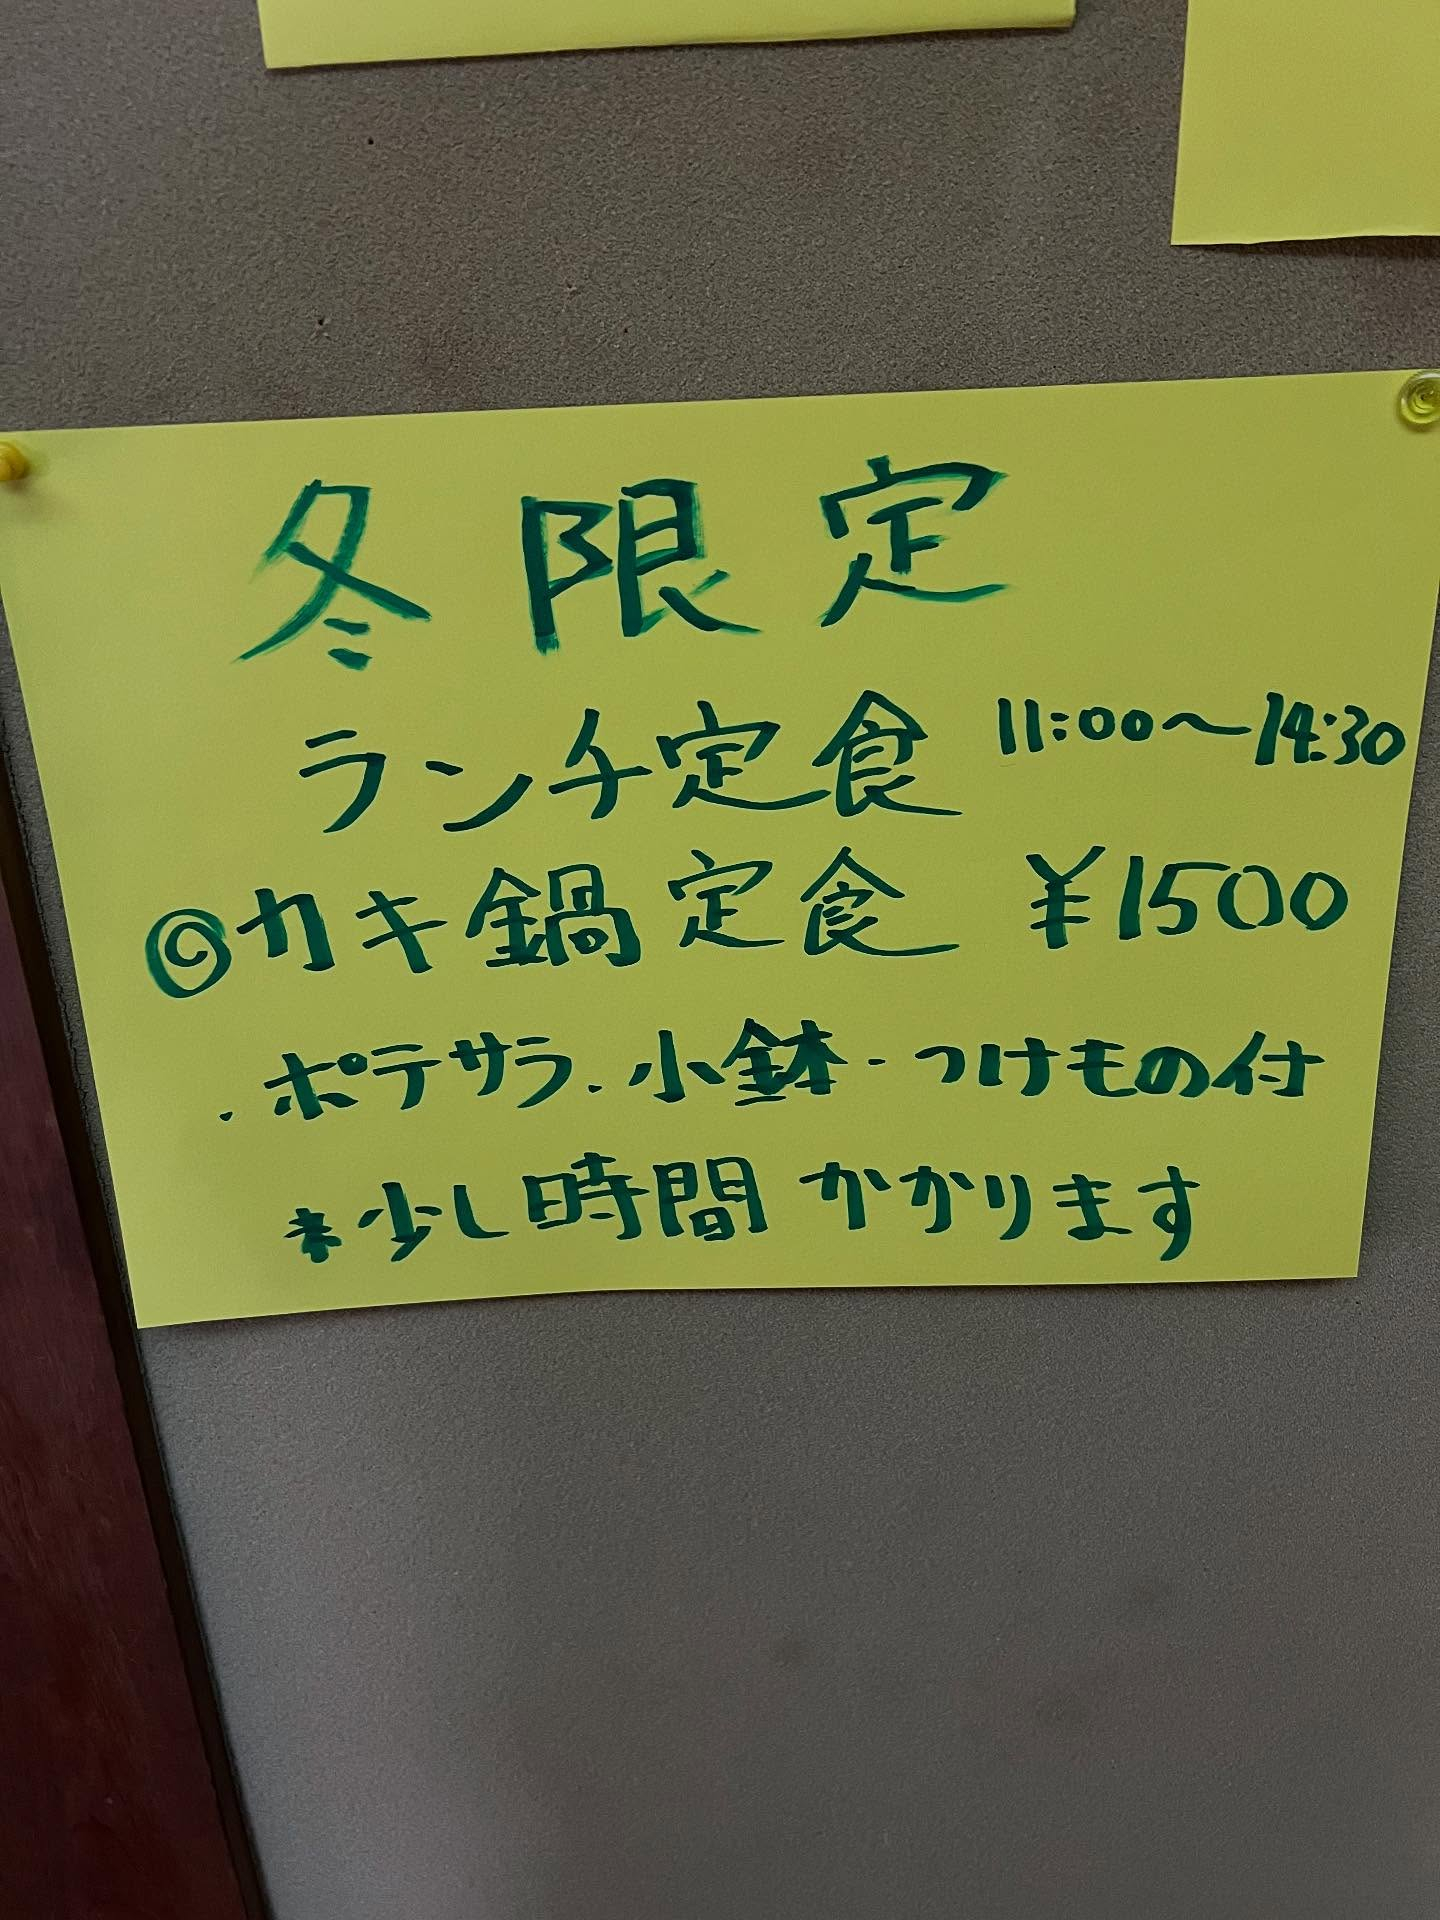 冬限定
ランチ定食 11:00～14:30
◎カキ鍋定食 ¥1500
・ポテサラ・小鉢・つけもの付
*少し時間かかります